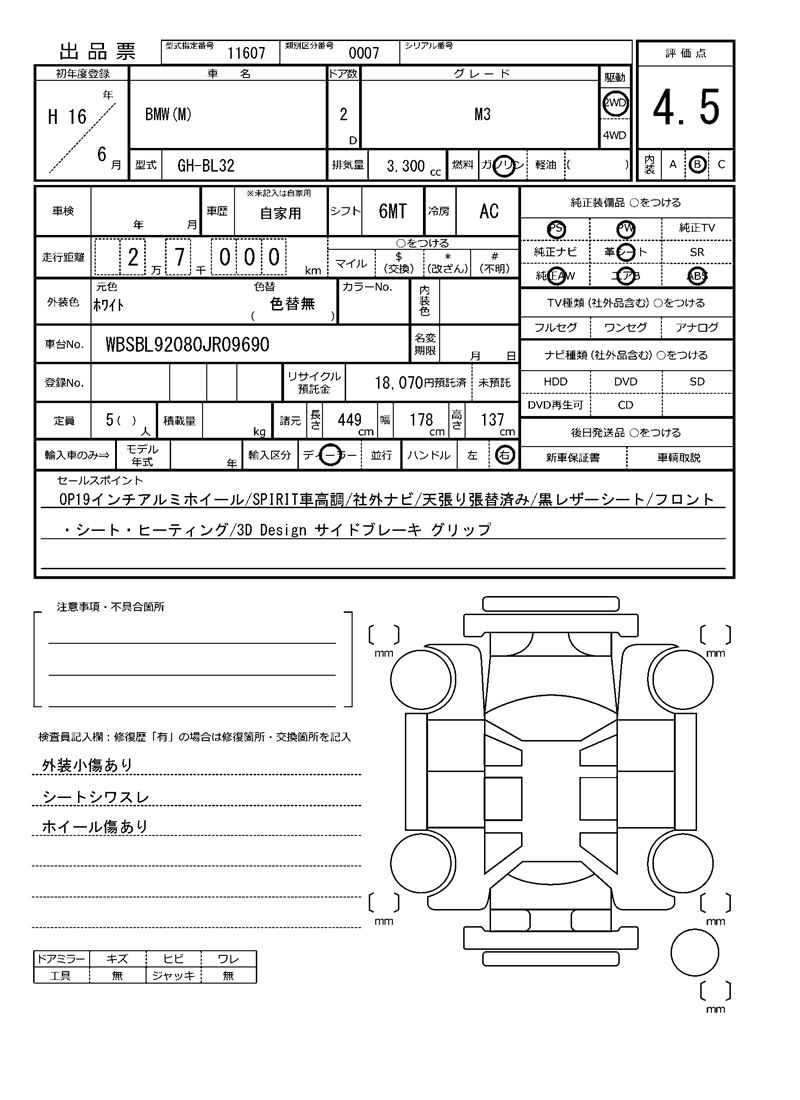 出品票
型式指定番号 11607 類別区分番号 0007 シリアル番号
評価点
4.5
内装 A B C
初年度登録 車名 ドア数 グレード 駆動
H 16 年 6 月
BMW(M) 2 D M3 2WD 4WD
型式 GH-BL32 排気量 3,300 cc 燃料 ガソリン 軽油 ( )
車検 年 月 車歴 ※未記入は自家用 自家用 シフト 6MT 冷房 AC
走行距離 2 万 7 千 0 0 0 km
○をつける
マイル $(交換) *(改ざん) #(不明)
外装色 元色 ホワイト 色替 色替無 ( ) カラーNo. 内装色
車台No. WBSBL92080JR09690 名変期限 月 日
登録No. リサイクル預託金 18,070円預託済 未預託
定員 5 ( ) 人 積載量 kg 諸元 長さ 449 cm 幅 178 cm 高さ 137 cm
輸入車のみ⇒ モデル年式 年 輸入区分 ディーラー 並行 ハンドル 左 右
純正装備品 ○をつける
PS PW 純正TV
純正ナビ 革シート SR
純正AW エアB ABS
TV種類(社外品含む)○をつける
フルセグ ワンセグ アナログ
ナビ種類(社外品含む)○をつける
HDD DVD SD
DVD再生可 CD
後日発送品 ○をつける
新車保証書 車輌取説
セールスポイント
OP19インチアルミホイール/SPIRIT車高調/社外ナビ/天張り張替済み/黒レザーシート/フロント
・シート・ヒーティング/3D Design サイドブレーキ グリップ
注意事項・不具合箇所
検査員記入欄:修復歴「有」の場合は修復箇所・交換箇所を記入
外装小傷あり
シートシワスレ
ホイール傷あり
ドアミラー キズ ヒビ ワレ
工具 無 ジャッキ 無
mm
mm
mm
mm
mm